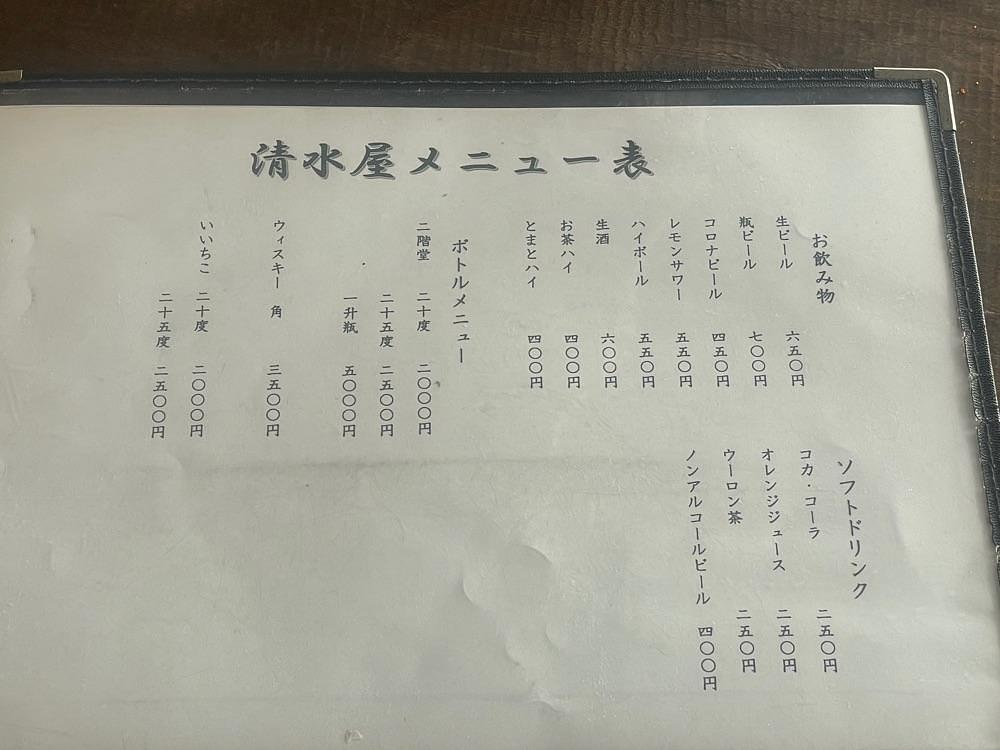 清水屋メニュー表
お飲み物
生ビール 六五〇円
瓶ビール 七〇〇円
コロナビール 四五〇円
レモンサワー 五五〇円
ハイボール 五五〇円
生酒 六〇〇円
お茶ハイ 四〇〇円
とまとハイ 四〇〇円
ボトルメニュー
二階堂 二十度 二〇〇〇円
二十五度 二五〇〇円
一升瓶 五〇〇〇円
ウィスキー 角 三五〇〇円
いいちこ 二十度 二〇〇〇円
二十五度 二五〇〇円
ソフトドリンク
コカ・コーラ 二五〇円
オレンジジュース 二五〇円
ウーロン茶 二五〇円
ノンアルコールビール 四〇〇円